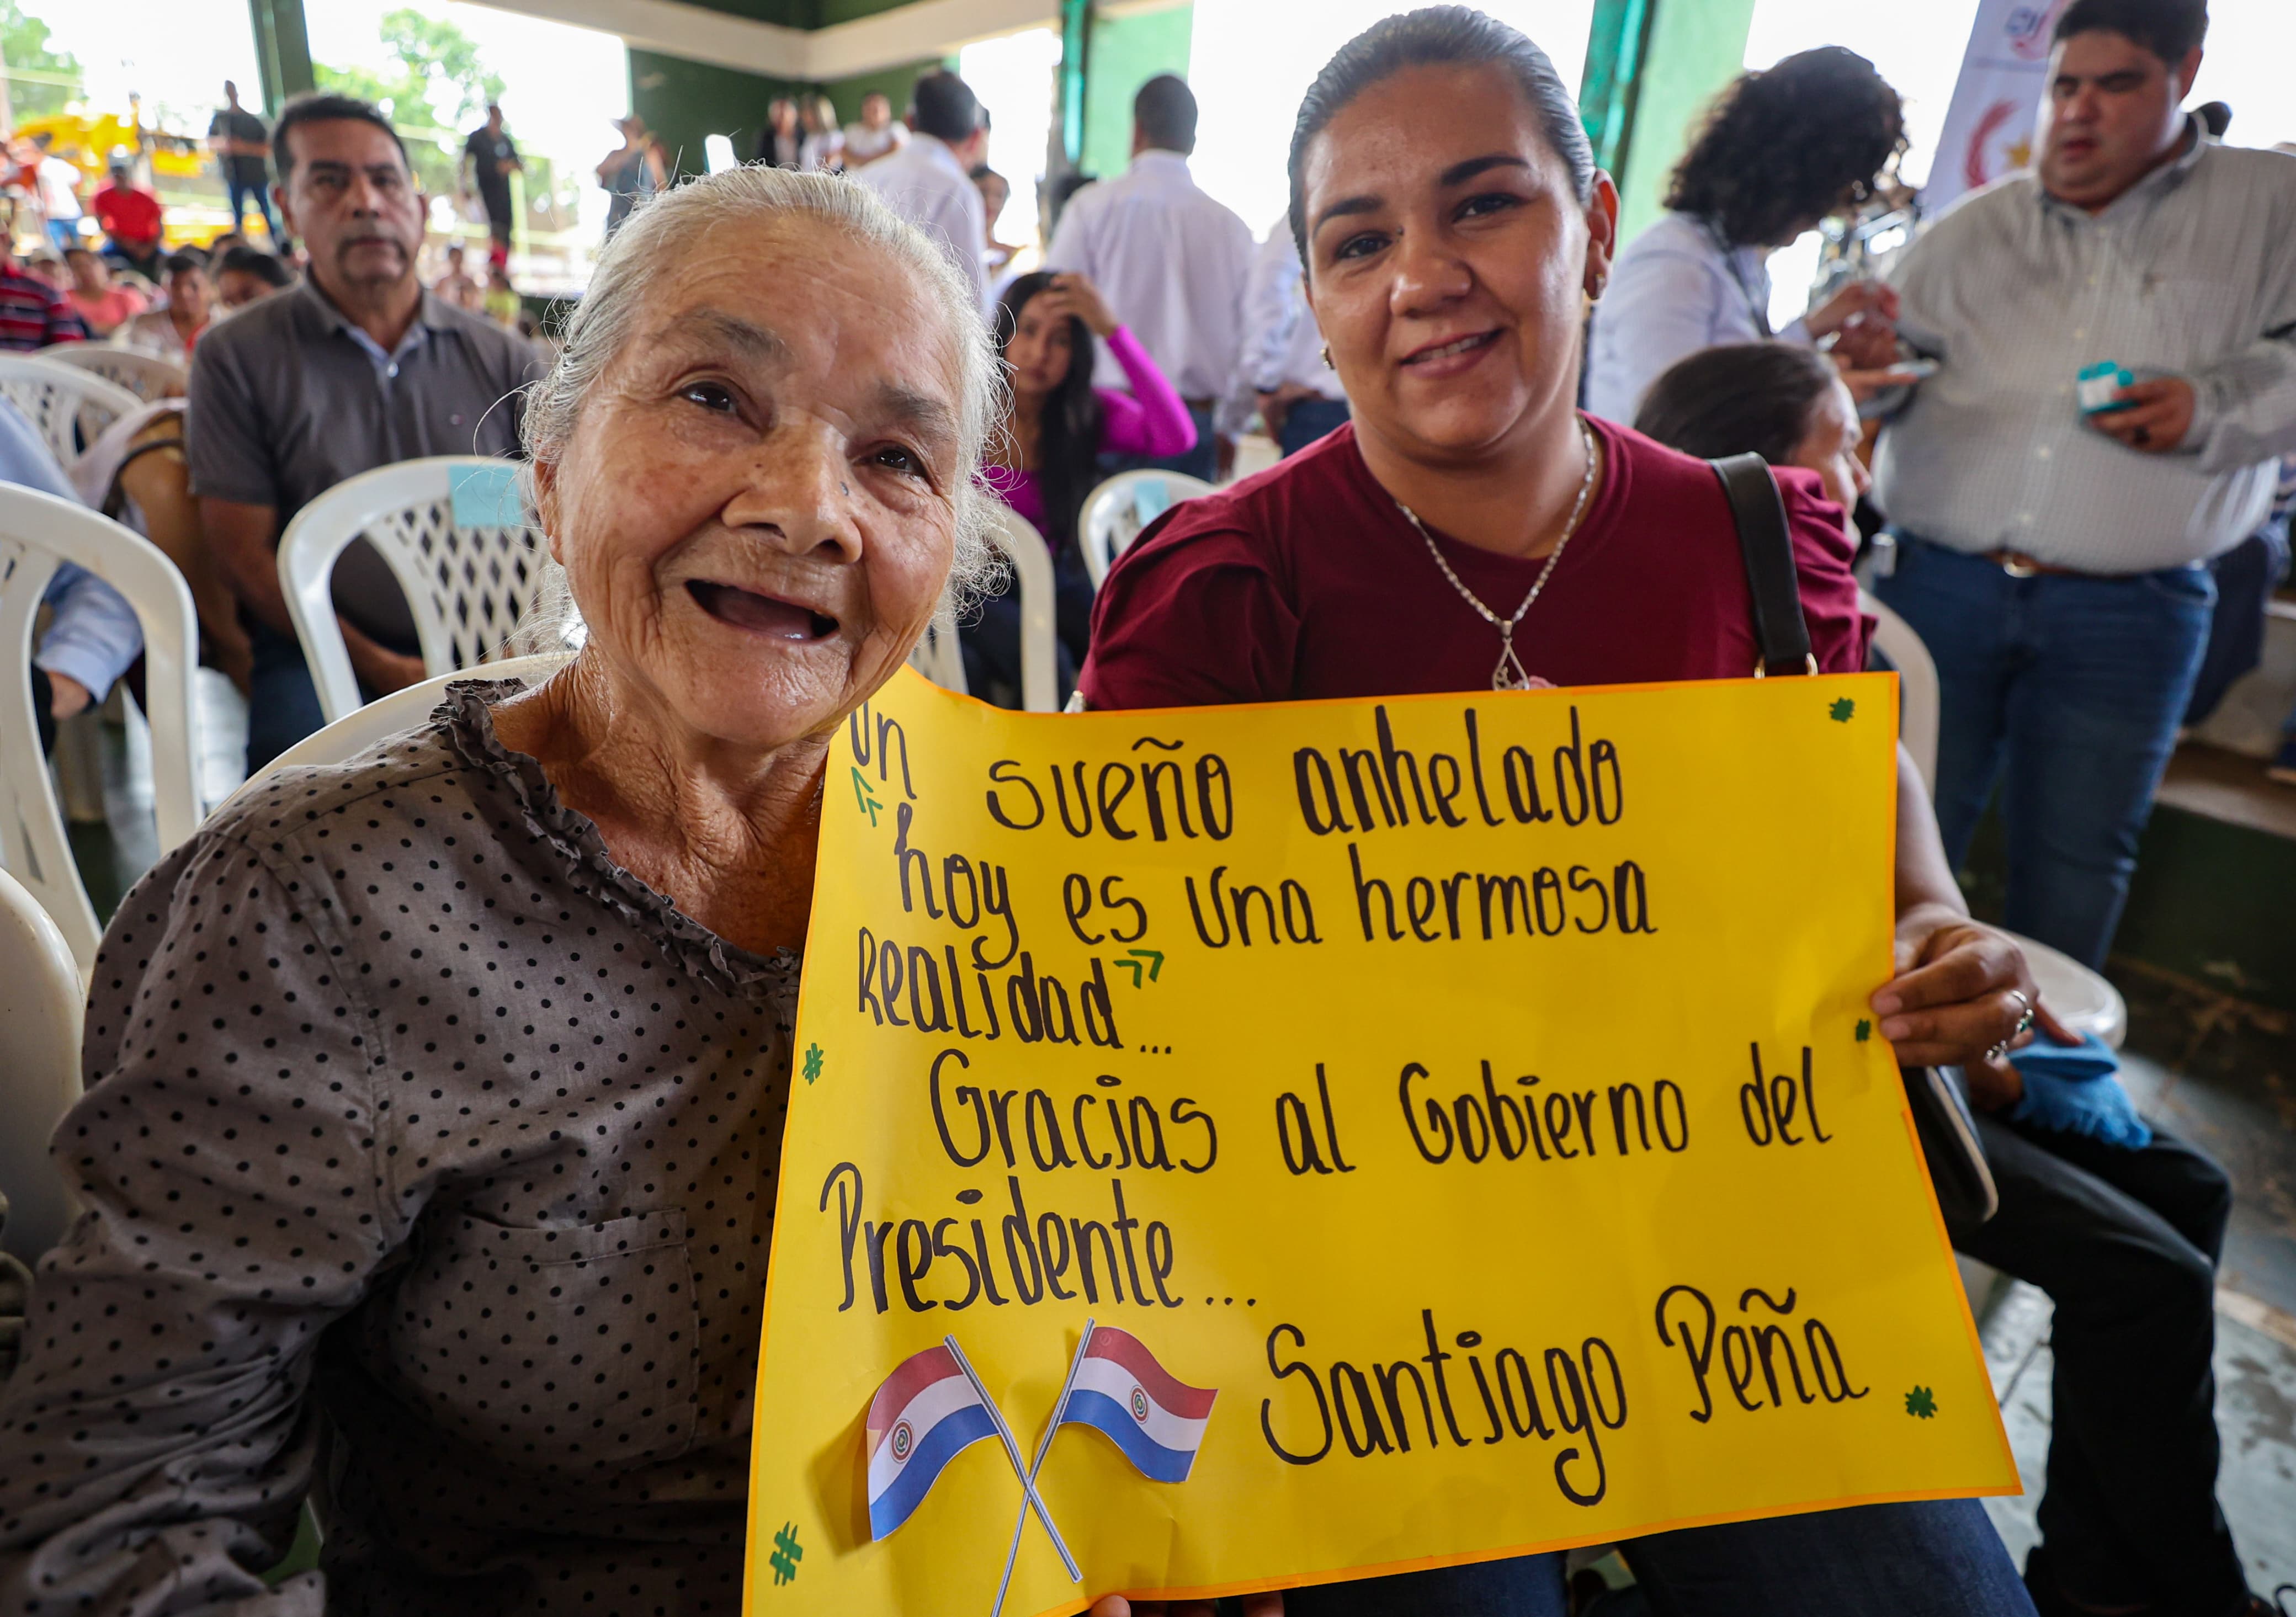 Un sueño anhelado
« hoy es una hermosa
Realidad»...
Gracias al Gobierno del
Presidente...
Santiago Peña